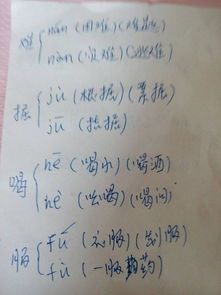 难 nán (困难)(难题)
nàn (灾难)(避难)
掘 jù (根据)(票据)
jū (拮据)
喝 hē (喝水)(喝酒)
hè (吆喝)(喝问)
服 fú (衣服)(制服)
fù (一服 药)